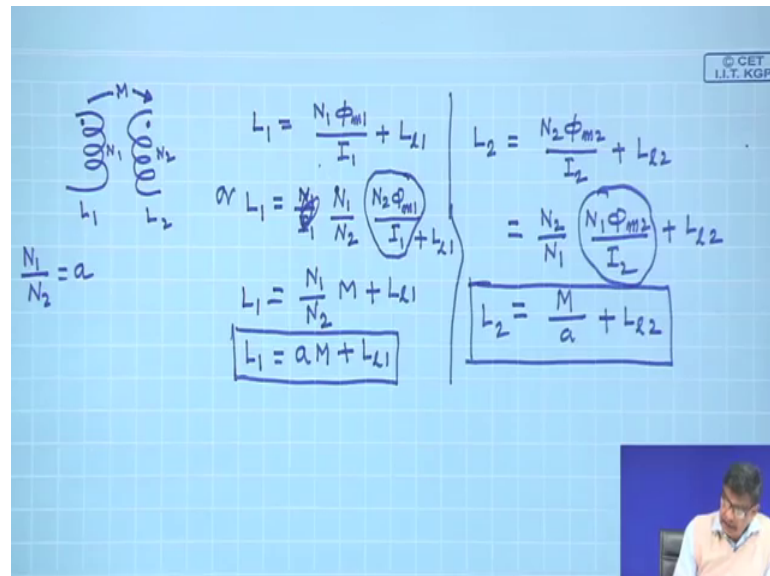 © CET
I.I.T. KGP
M
N₁ N₂
L₁ L₂
N₁/N₂ = a
L₁ = N₁ϕm1/I₁ + Ll1
or L₁ = N₁/N₂ N₂ϕm1/I₁ + Ll1
L₁ = N₁/N₂ M + Ll1
L₁ = a M + Ll1
L₂ = N₂ϕm2/I₂ + Ll2
= N₂/N₁ N₁ϕm2/I₂ + Ll2
L₂ = M/a + Ll2